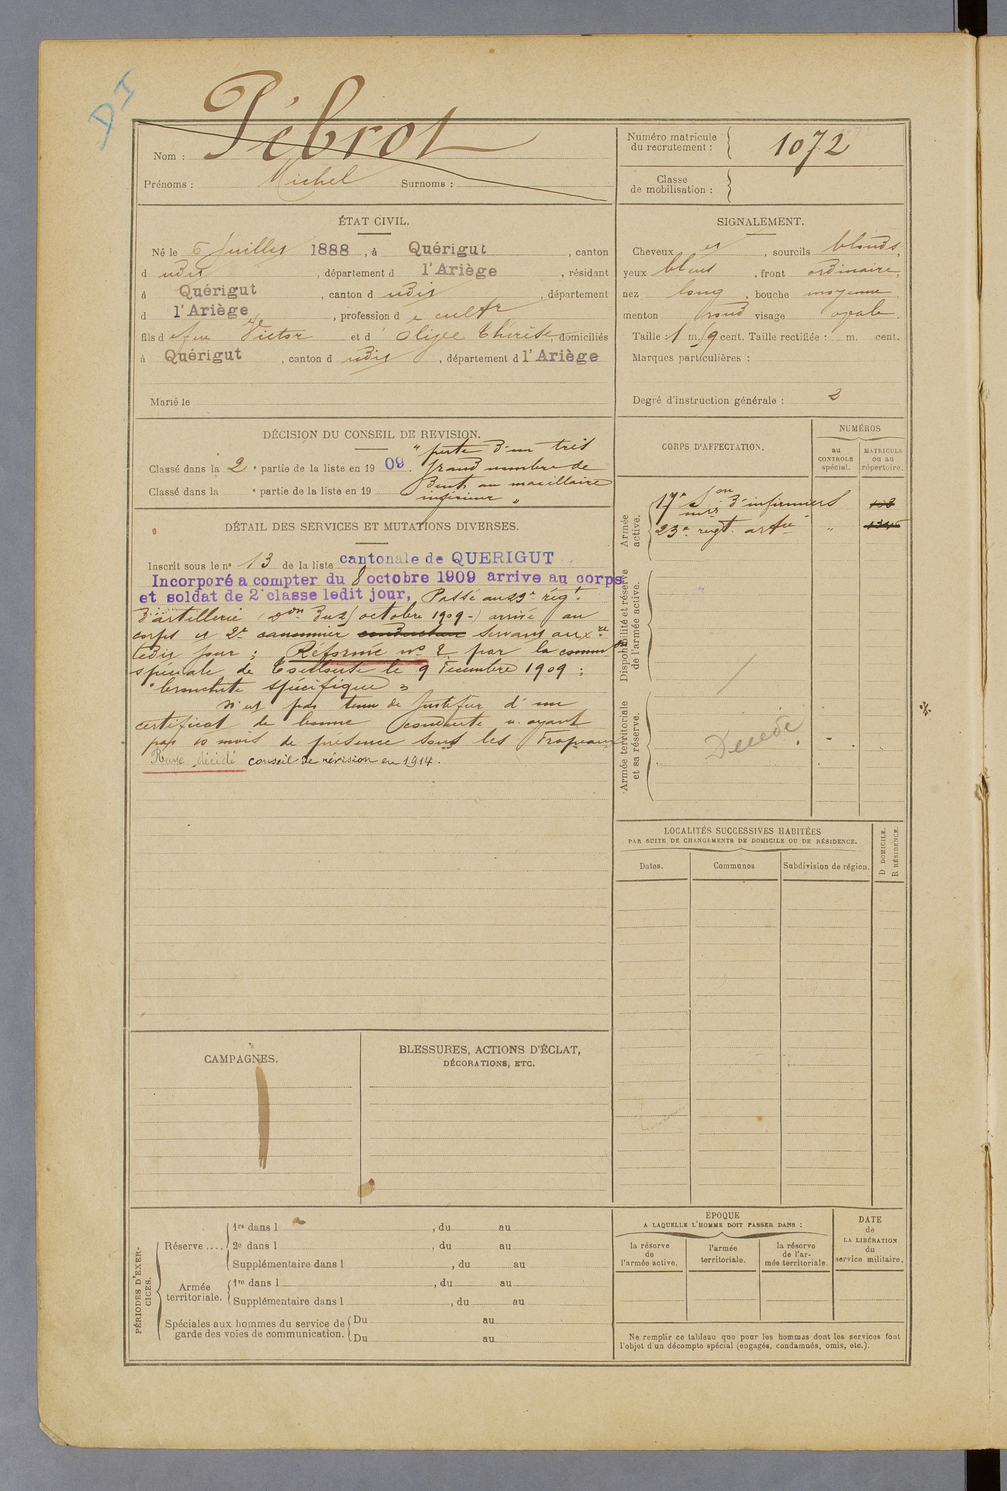 DI
Nom : Pébrot
Prénoms : Michel Surnoms :
Numéro matricule du recrutement : 1072
Classe de mobilisation :
ÉTAT CIVIL.
Né le 6 Juillet 1888, à Quérigut, canton
d udit, département d l'Ariège, résidant
à Quérigut, canton d udit, département
d l'Ariège, profession d e cultr
fils d e feu Victor et d' Thérèse, domiciliés
à Quérigut, canton d udit, département d l'Ariège
Marié le
SIGNALEMENT.
Cheveux et, sourcils blonds,
yeux bleus, front ordinaire,
nez long, bouche moyenne
menton rond visage ovale.
Taille : 1 m. cent. Taille rectifiée : m. cent.
Marques particulières :
Degré d'instruction générale : 2
DÉCISION DU CONSEIL DE REVISION.
Classé dans la 2e partie de la liste en 1909. "perte d'un très
grand nombre de
Classé dans la e partie de la liste en 19 dents au maxillaire
inférieur"
DÉTAIL DES SERVICES ET MUTATIONS DIVERSES.
Inscrit sous le no 13 de la liste cantonale de QUERIGUT
Incorporé a compter du 8 octobre 1909 arrive au corps
et soldat de 2e classe ledit jour, Passé au 23e régt
d'artillerie (don du 21 octobre 1909 -) arrivé au
corps et 2e canonnier conducteur servant auxre
ledit jour ; Réformé no 2 par la common
spéciale de Toulouse le 9 Décembre 1909 :
"bronchite spécifique"
N'est pas tenu de justifier d'un
certificat de bonne conduite n'ayant
pas 10 mois de présence sous les Drapeaux
Rayé décédé conseil de révision en 1914.
CORPS D'AFFECTATION.
NUMÉROS
au CONTROLE spécial.
MATRICULE ou au répertoire.
Armée active.
17e Son d'infirmiers
mres
23e regt artie "
Disponibilité et réserve de l'armée active.
Armée territoriale et sa réserve.
Décédé
LOCALITÉS SUCCESSIVES HABITÉES
PAR SUITE DE CHANGEMENTS DE DOMICILE OU DE RÉSIDENCE.
Dates. Communes Subdivision de région.
D DOMICILE.
R RÉSIDENCE.
CAMPAGNES.
BLESSURES, ACTIONS D'ÉCLAT,
DÉCORATIONS, ETC.
PÉRIODES D'EXERCICES.
Réserve ....
1re dans l , du au
2e dans l , du au
Supplémentaire dans l , du au
Armée territoriale.
1re dans l , du au
Supplémentaire dans l , du au
Spéciales aux hommes du service de garde des voies de communication.
Du au
Du au
ÉPOQUE
A LAQUELLE L'HOMME DOIT PASSER DANS :
la réserve de l'armée active.
l'armée territoriale.
la réserve de l'armée territoriale.
DATE de LA LIBÉRATION du service militaire.
Ne remplir ce tableau que pour les hommes dont les services font
l'objet d'un décompte spécial (engagés, condamnés, omis, etc.).